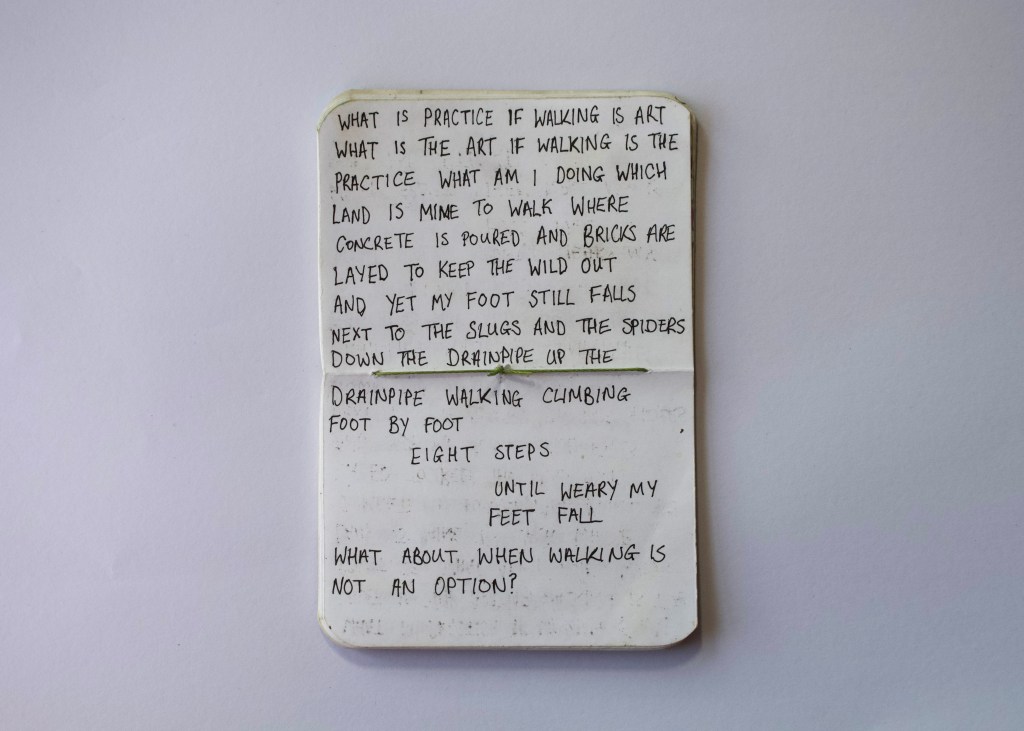 WHAT IS PRACTICE IF WALKING IS ART
WHAT IS THE ART IF WALKING IS THE
PRACTICE WHAT AM I DOING WHICH
LAND IS MINE TO WALK WHERE
CONCRETE IS POURED AND BRICKS ARE
LAYED TO KEEP THE WILD OUT
AND YET MY FOOT STILL FALLS
NEXT TO THE SLUGS AND THE SPIDERS
DOWN THE DRAINPIPE UP THE
DRAINPIPE WALKING CLIMBING
FOOT BY FOOT
EIGHT STEPS
UNTIL WEARY MY
FEET FALL
WHAT ABOUT WHEN WALKING IS
NOT AN OPTION?